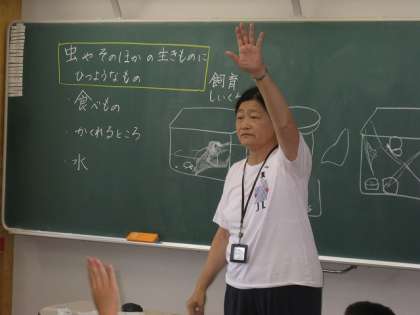 虫やそのほかの生きものに
ひつようなもの
・食べもの
・かくれるところ
・水
飼育
しいく